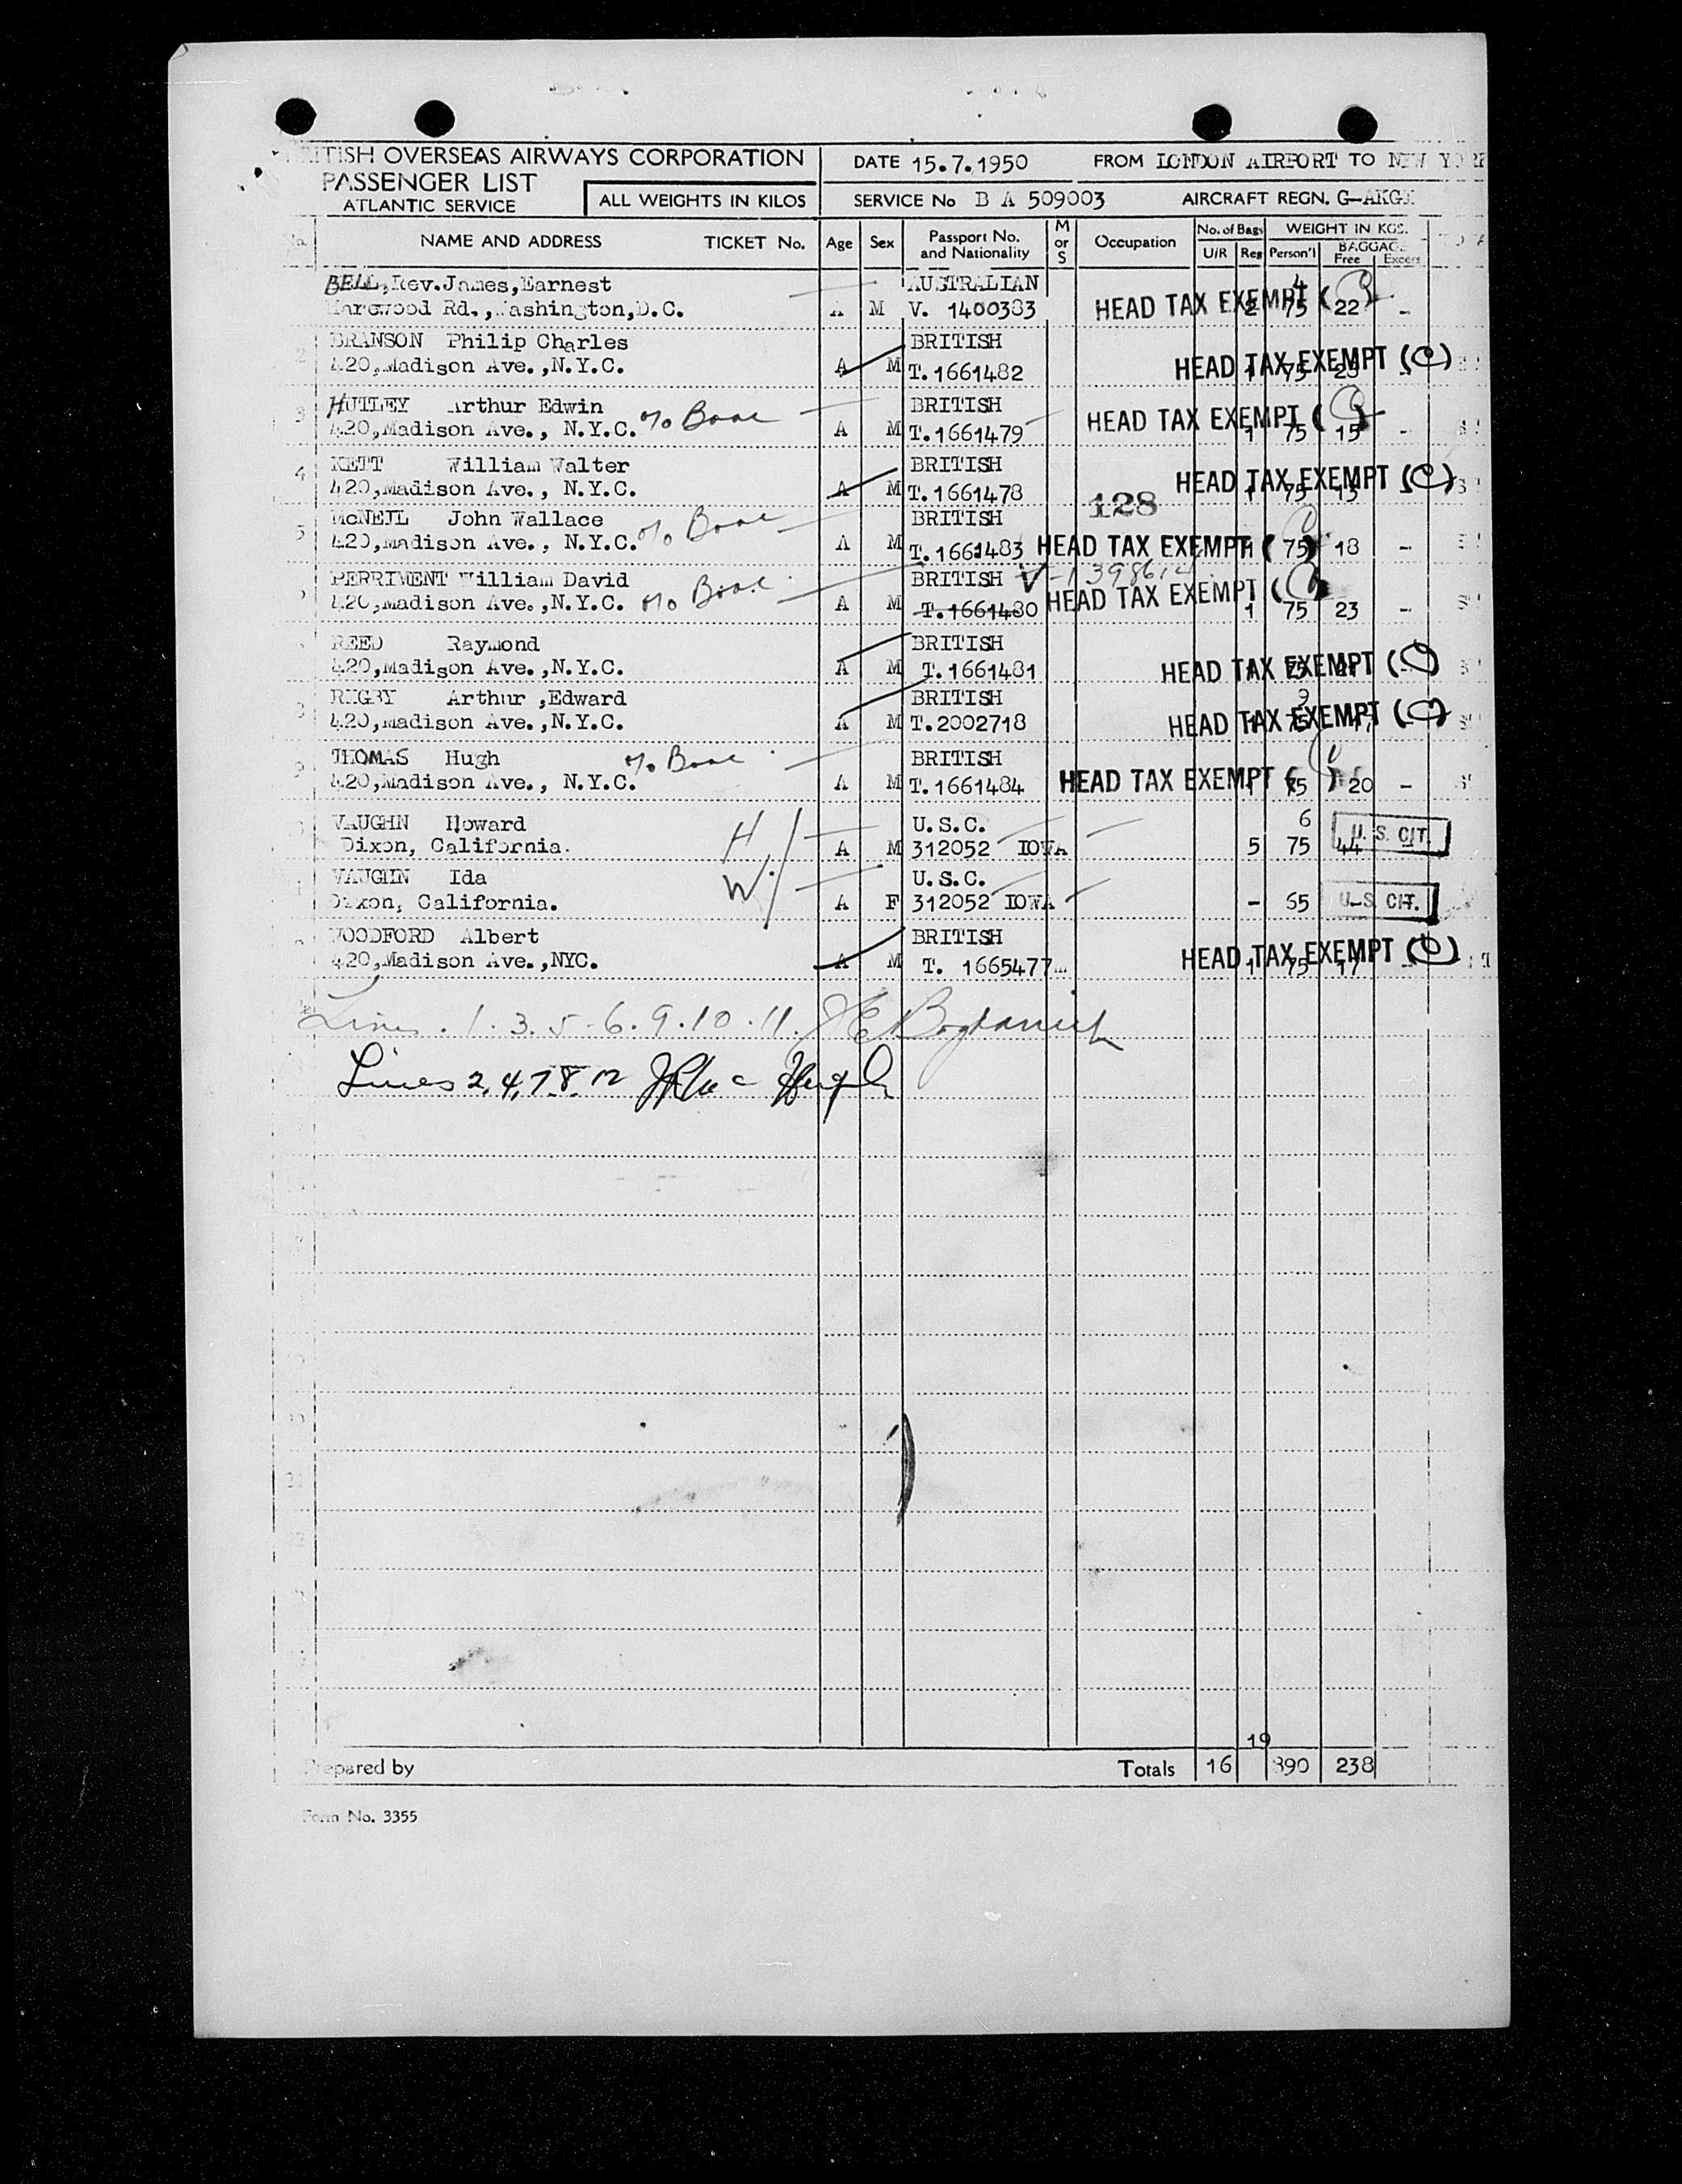 BRITISH OVERSEAS AIRWAYS CORPORATION
PASSENGER LIST
ATLANTIC SERVICE
ALL WEIGHTS IN KILOS
DATE 15.7.1950 FROM LONDON AIRPORT TO NEW YORK
SERVICE No B A 509003 AIRCRAFT REGN. G-AKG
No. NAME AND ADDRESS TICKET No. Age Sex Passport No. and Nationality M or S Occupation No. of Bags U/R Reg WEIGHT IN KGS. Person'l BAGGAGE Free Excess
BELL, Rev. James, Earnest AUSTRALIAN 4
Rd., Washington, D.C. A M V. 1400383 HEAD TAX EXEMPT ( ) 2 75 22 -
BRANSON Philip Charles BRITISH
420, Madison Ave., N.Y.C. A M T. 1661482 HEAD TAX EXEMPT (C) 1 75
3 HUTLEY Arthur Edwin BRITISH
420, Madison Ave., N.Y.C. % Boac A M T. 1661479 HEAD TAX EXEMPT ( ) 1 75 15 -
4 KETT William Walter BRITISH
420, Madison Ave., N.Y.C. A M T. 1661478 HEAD TAX EXEMPT (C) 1 75
128
5 McNEIL John Wallace BRITISH
420, Madison Ave., N.Y.C. % Boac A M T. 1661483 HEAD TAX EXEMPT ( ) 1 75 18 -
PERRIMENT William David BRITISH V-1398614
420, Madison Ave., N.Y.C. % Boac A M T. 1661480 HEAD TAX EXEMPT ( ) 1 75 23 -
REED Raymond BRITISH
420, Madison Ave., N.Y.C. A M T. 1661481 HEAD TAX EXEMPT (C) 1 75
8 RIGBY Arthur, Edward BRITISH
420, Madison Ave., N.Y.C. A M T. 2002718 HEAD TAX EXEMPT (C) 1 75
9 THOMAS Hugh % Boac BRITISH
420, Madison Ave., N.Y.C. A M T. 1661484 HEAD TAX EXEMPT ( ) 1 75 20 -
VAUGHN Howard H U.S.C. 6
Dixon, California. A M 312052 IOWA 5 75 44 U.S. CIT.
VAUGHN Ida W U.S.C.
Dixon, California. A F 312052 IOWA - 65 U.S. CIT.
WOODFORD Albert BRITISH
420, Madison Ave., NYC. A M T. 1665477 HEAD TAX EXEMPT (C) 1 75 17
Lines . 1. 3. 5. 6. 9. 10. 11.
Lines 2, 4, 7, 8, 12
19
Prepared by Totals 16 890 238
Form No. 3355